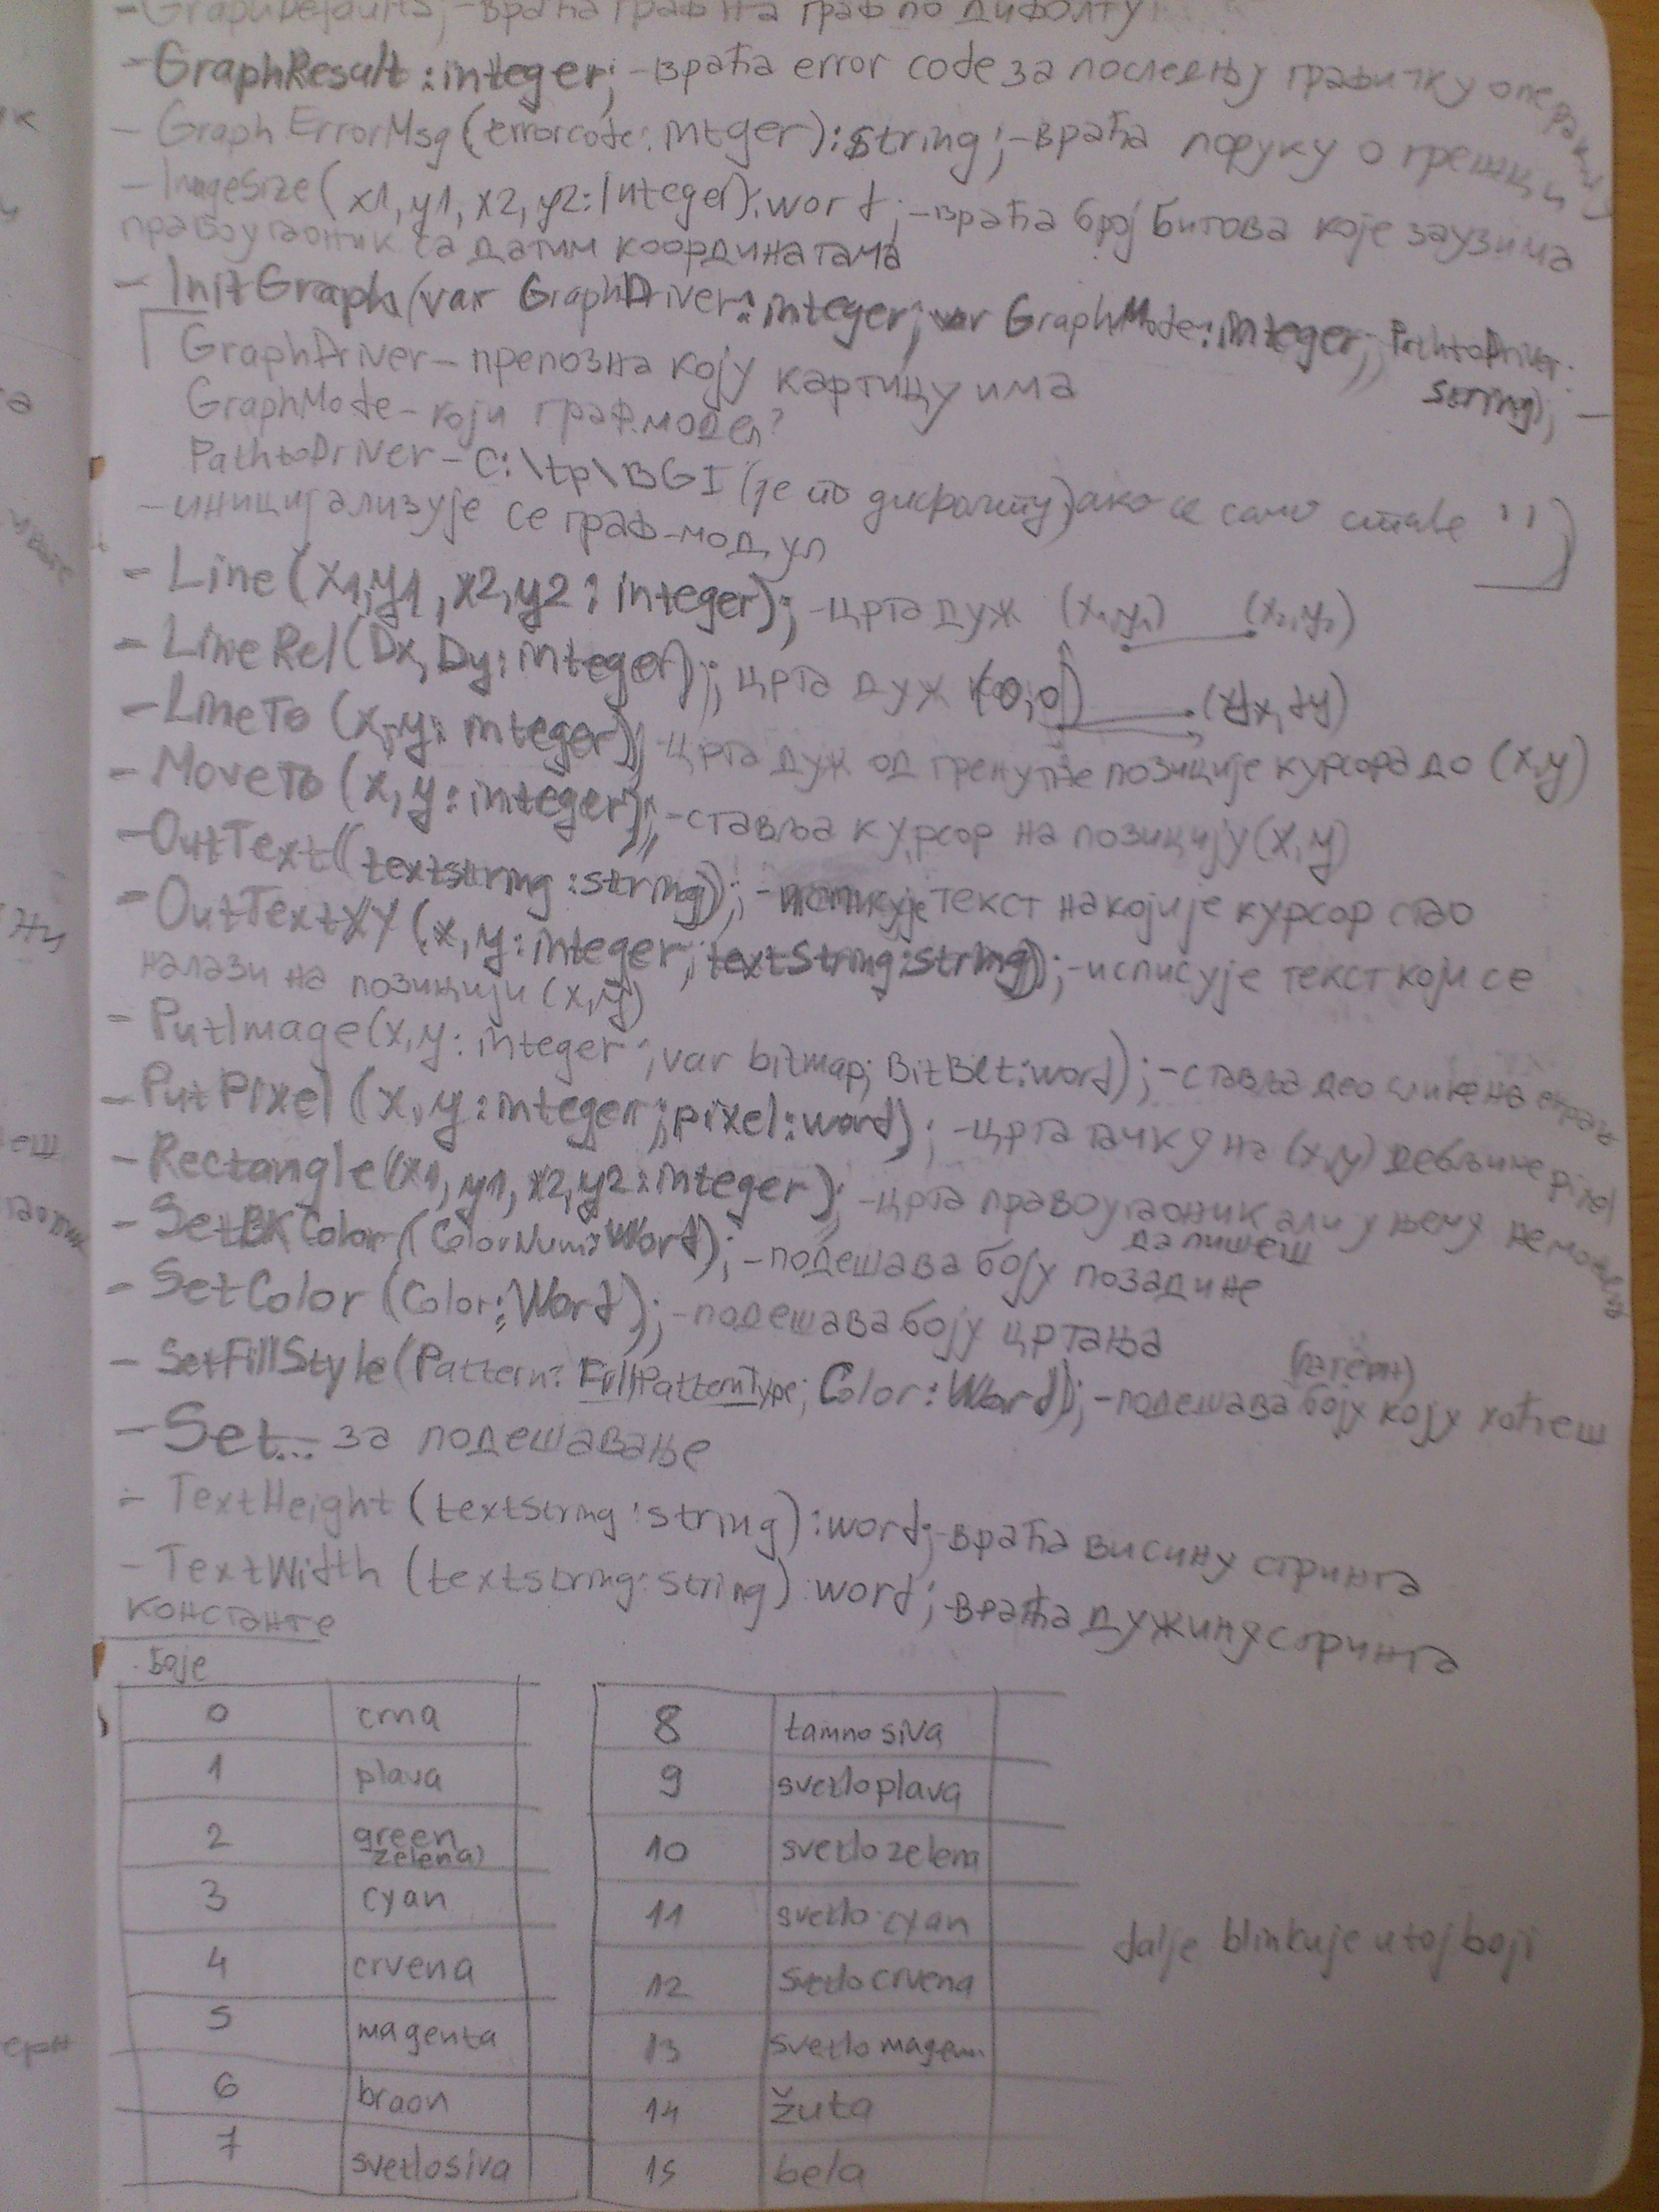 -GraphDefaults; -враћа граф на граф по дифолту
-GraphResult:integer; -враћа error code за последњу графичку операцију
- GraphErrorMsg(errorcode: intger):string; -враћа поруку о грешци
- ImageSize(x1, y1, x2, y2:Integer):word; -враћа број битова које заузима
правоугаоник са датим координатама
- InitGraph(var GraphDriver:integer; var GraphMode:integer; PathtoDriver:
string); -
GraphDriver- препозна коју картицу има
GraphMode- који граф.модел?
PathtoDriver- C:\tp\BGI (је по дифолту) ако се само стави ''
-иницијализује се граф-модул
- Line(x1,y1,x2,y2:integer); -црта дуж (x1,y1) (x2,y2)
- LineRel(Dx, Dy:integer); црта дуж (0,0)
- LineTo (x,y: integer); -црта дуж од тренутне позиције курсора до (x,y)
- MoveTo (x,y:integer); -ставља курсор на позицију (x,y)
-OutText(textstring:string); -исписује текст на који је курсор стао
- OutTextXY (x,y:integer; textString:string); -исписује текст који се
налази на позицији (x,y)
- PutImage(x,y: integer; var bitmap; BitBlt:word); -ставља део слике на екран
- PutPixel (x, y:integer; pixel:word); -црта тачку на (x,y) дебљине pixel
- Rectangle(x1, y1, x2, y2:integer); -црта правоугаоник али у њему не можеш
да пишеш
- SetBKColor (ColorNum:Word); -подешава боју позадине
- SetColor (Color:Word); -подешава боју цртања
- SetFillStyle(Pattern: FillPatternType; Color:Word); -подешава боју коју хоћеш
- Set... за подешавање
- TextHeight (textString:string):word; -враћа висину стринга
- TextWidth (textstring:string) word; -враћа дужину стринга
константе
Боје
0 crna 8 tamno siva
1 plava 9 svetlo plava
2 green 10 svetlo zelena
zelena)
3 cyan 11 svetlo cyan
dalje blinkuje u toj boji
4 crvena 12 svetlo crvena
5 magenta 13 svetlo magen
6 braon 14 žuta
7 svetlosiva 15 bela